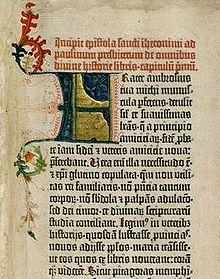 Incipit epistola sancti iheronimi ad
paulinum presbiterum de omnibus
divine historie libris. capitulum pmu.
Frater ambrosius
tua michi munus-
cula pferens. detulit
sil et suavissimas
lras. q a principio
amiciciar. fide pba-
te iam fidei et veteris amicicie nova
pferebant. Vera eni illa necessitudo e.
et xpi glutino copulata. qm non utili-
tas rei familiaris. no pntia tantum
corpoz. no sbdola et palpas adulacio.
sed dei timor. et divinaz scripturarum
studia conciliant. Legim in veterib
historijs. quosda lustrasse puincias.
novos adijsse pplos. maria trasisse.
ut eos quos ex libris noverant: cora
qz viderent. Sicut pitagoras memphi-